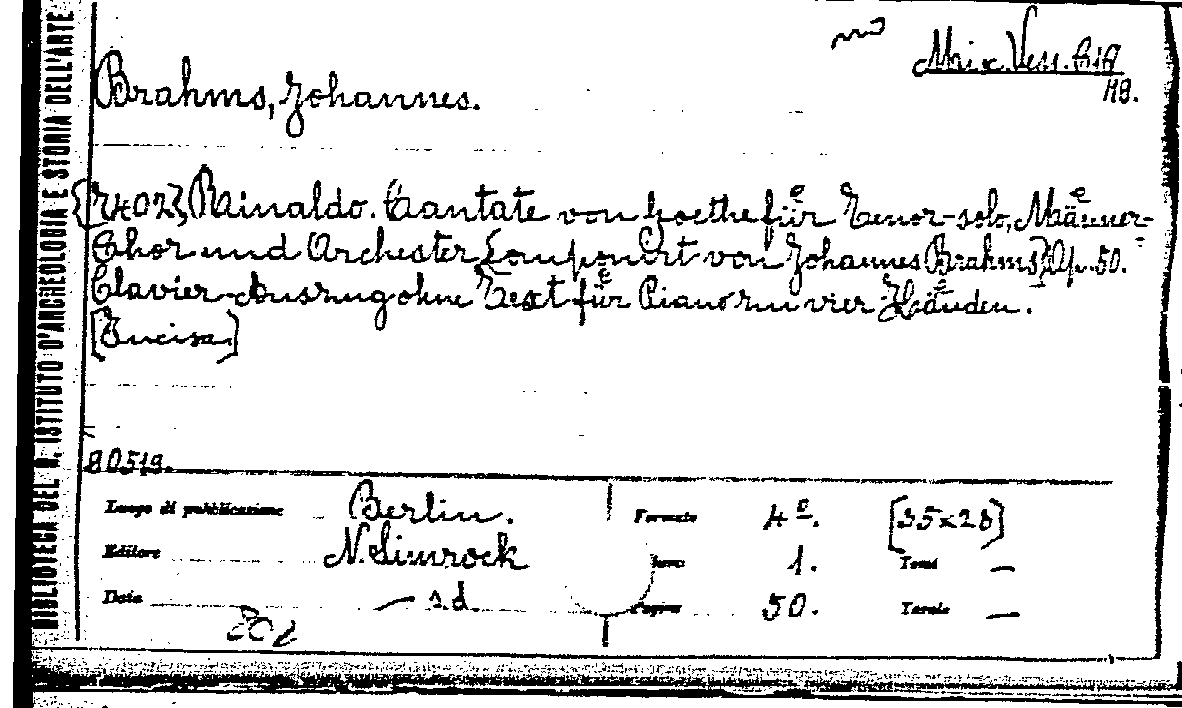 BIBLIOTECA DEL R. ISTITUTO D'ARCHEOLOGIA E STORIA DELL'ARTE
Mus. Vess. B1A
118.
Brahms, Johannes.
[7402] Rinaldo. Cantate von Goethe für Tenor-solo, Männer-
Chor und Orchester componirt von Johannes Brahms] Op. 50.
Clavier-Auszug ohne Text für Piano zu vier Händen.
[Incisa]
80519.
Luogo di pubblicazione Berlin. Formato 4º. [35x28]
Editore N. Simrock 1. Tomi —
Data — s.d. Pagine 50. Tavole —